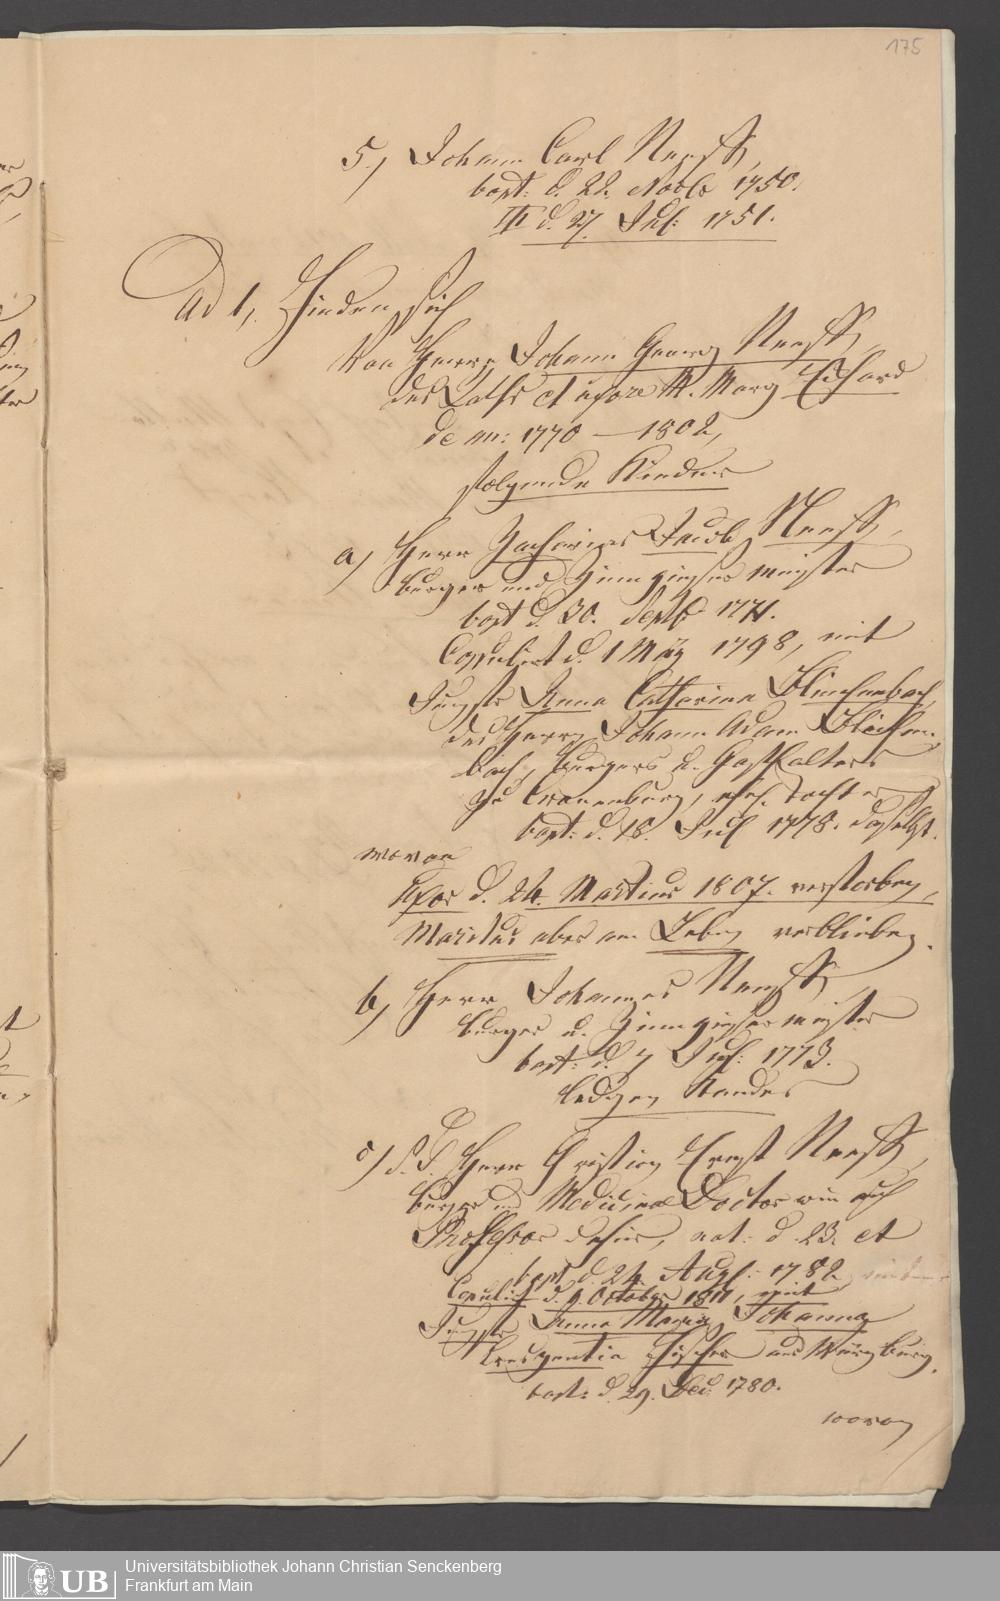 175
5.) Johann Carl Neeff,
bapt: d. 22. Novbr 1750.
d. 27. Jul: 1751.
Ad 1, Finden sich
Von Herrn Johann Georg Neeff,
des Raths et uxore M. Marg Eckhard
de an: 1770 – 1802,
folgende Kinder
a) Herr Zacharias Jacob Neeff,
burger und Zinngiesser meister
bapt d. 30. Septb 1771.
Copulirt d. 1 May 1798, mit
Jungfr Anna Catharina Bleichenbach,
des Herrn Johann Adam Bleichen-
bach, burgers u. Gasthalters
zu Cronenburg, ehel. Tochter
bapt: d. 18. Jul 1778. daselbst.
wovon
Uxor d. 24. Martius 1807. verstorben,
Maritus aber am Leben verblieben.
b) Herr Johannes Neeff,
burger u. Zinngiesser meister
bapt: d. 7 Jul: 1773.
ledigen Standes
c) S. T. Herr Christian Ernst Neeff,
burger und Medicinae Doctor wie auch
Professor dahier, nat: d. 23. et
bapt d. 24. Augs: 1782
Copulirt d. 9. October 1811, mit
Jungfr Anna Maria Johanna
Crescentia Fischer aus Würzburg.
bapt: d. 29. Dec: 1780.
wovon
UB
Universitätsbibliothek Johann Christian Senckenberg
Frankfurt am Main